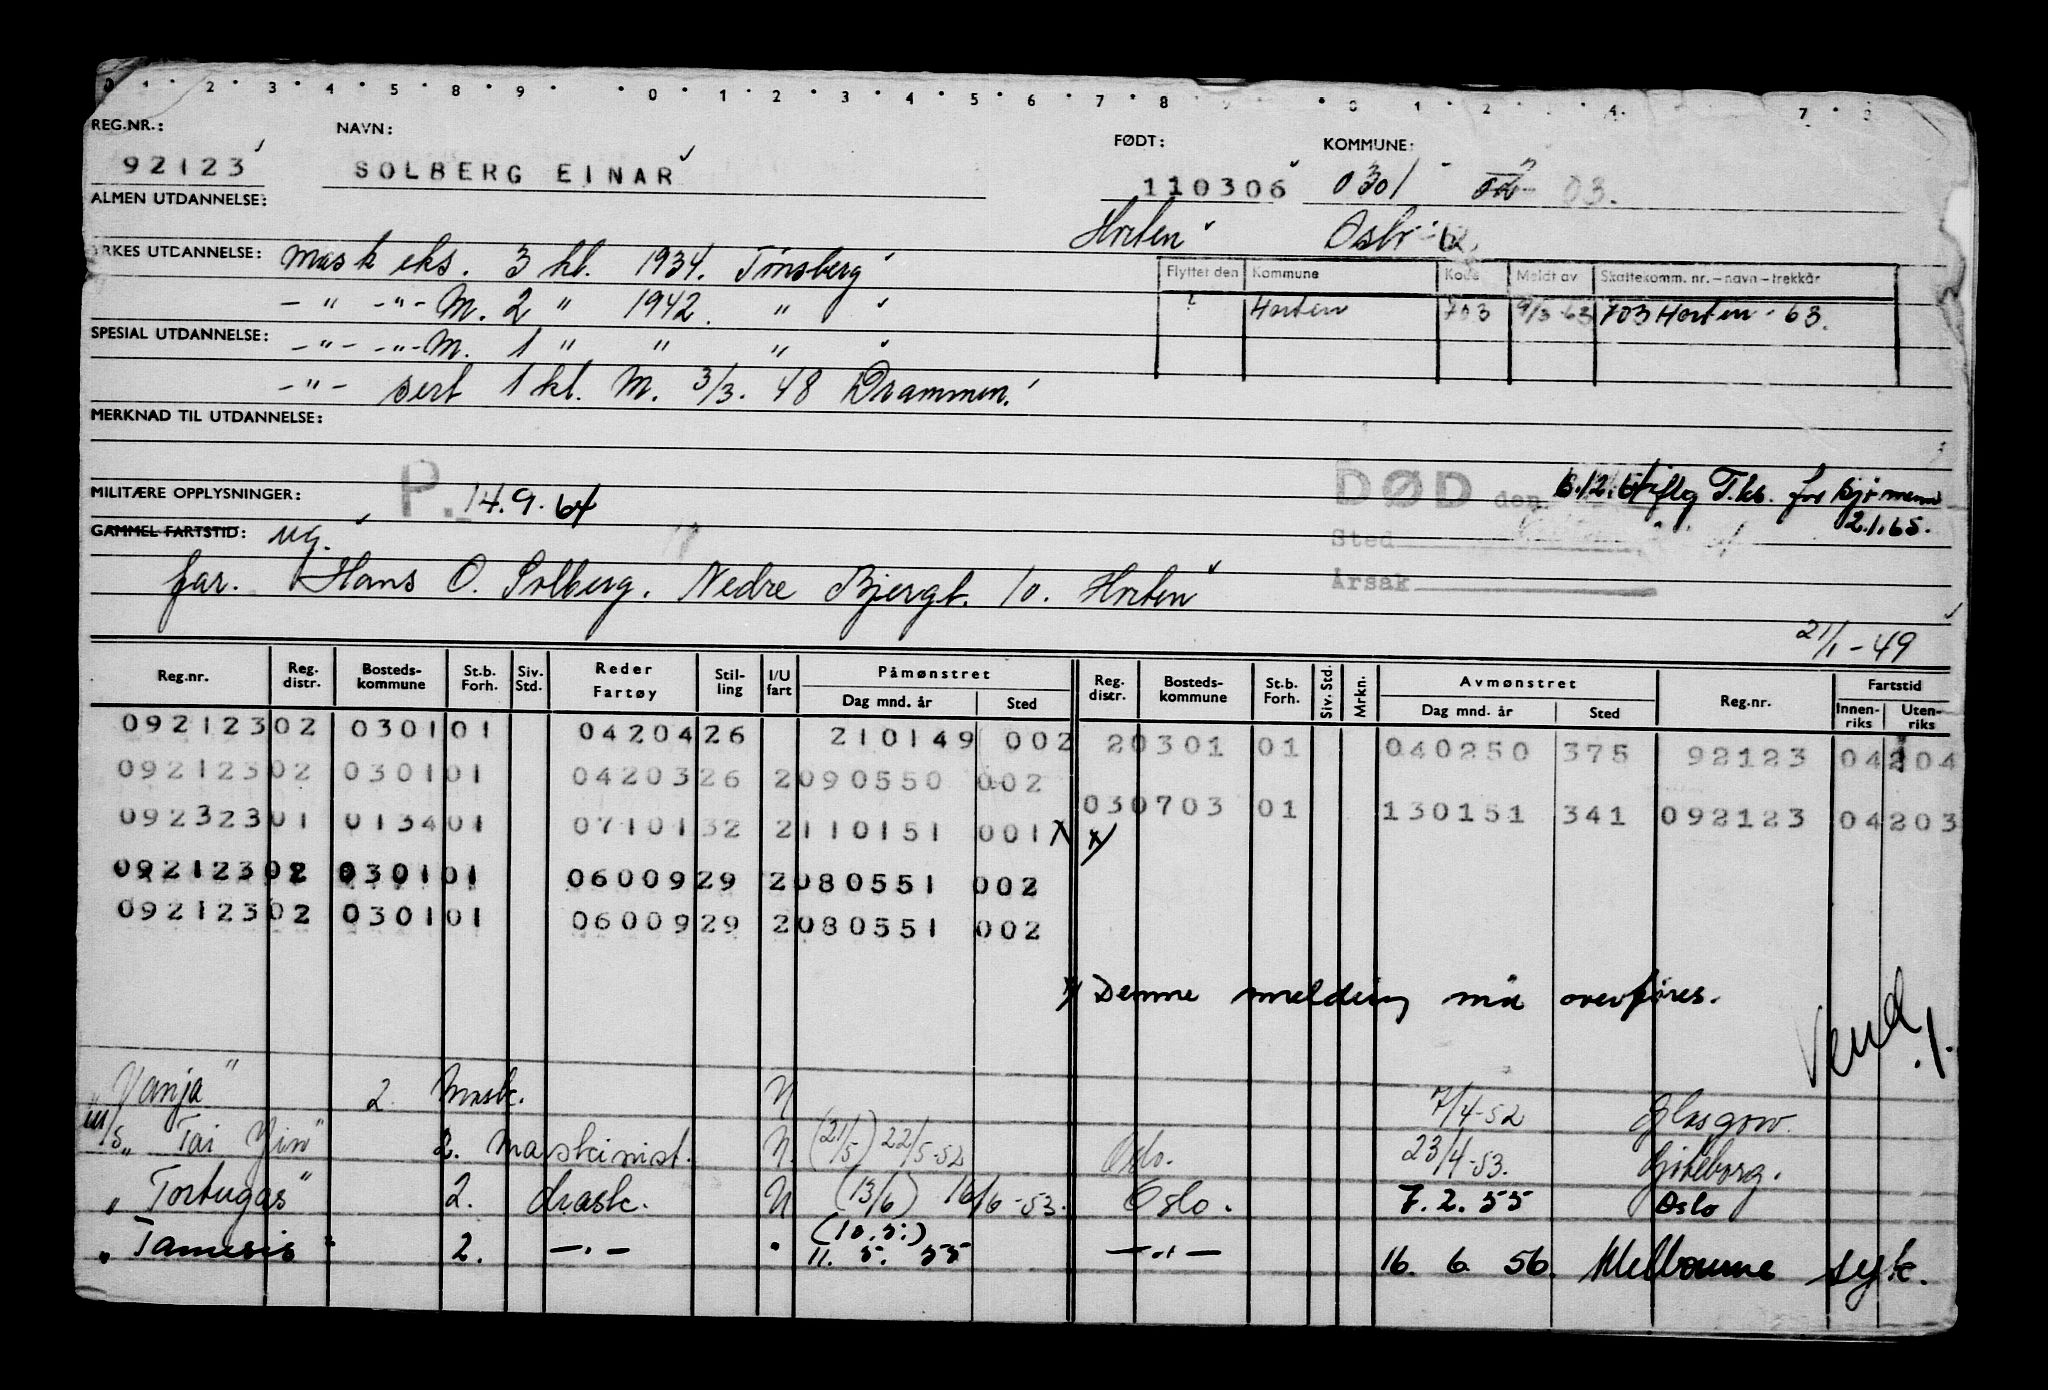 REG.NR.: NAVN: FØDT: KOMMUNE:
92123 SOLBERG EINAR 110306 0301 03.
ALMEN UTDANNELSE: Horten Oslo
YRKES UTDANNELSE: Mask eks. 3 kl. 1934. Tønsberg
Flyttet den Kommune Kode Meldt av Skattekomm. nr. – navn – trekkår
– " – " – M. 2 " 1942. "
Horten 703 9/3 63 703 Horten - 63.
SPESIAL UTDANNELSE: – " – – " – M. 1 " " "
– " – sert 1 kl. M. 3/3. 48 Drammen.
MERKNAD TIL UTDANNELSE:
MILITÆRE OPPLYSNINGER: P. 14.9.64 DØD den 6.12.64 iflg T.kk. for sjømenn
2.1.65.
GAMMEL FARTSTID: ug. Sted
far. Hans O. Solberg. Nedre Bjergt. 10. Horten Årsak
21/1 - 49
Reg.nr. Reg. distr. Bosteds-kommune St.b. Forh. Siv. Std. Reder Fartøy Stil-ling I/U fart Påmønstret Dag mnd. år Sted Reg. distr. Bosteds-kommune St.b. Forh. Siv. Std. Mrkn. Avmønstret Dag mnd. år Sted Reg.nr. Fartstid Innen-riks Uten-riks
092123 02 0301 01 04204 26 210149 002 20301 01 040250 375 92123 04204
092123 02 0301 01 04203 26 2 090550 002
030703 01 130151 341 092123 04203
092323 01 0134 01 07101 32 2 110151 001 x x/
092123 02 0301 01 06009 29 2 080551 002
092123 02 0301 01 06009 29 2 080551 002
x/ Denne melding må overføres.
Vend!
"Vanja" 2. Mask. U 7/4-52 Glasgow.
m/s "Tai Yin" 2. maskinist. U. (21/5) 22/5-52 Oslo. 23/4-53. Göteborg.
"Tortugas" 2. mask. U (13/6) 16/6-53. Oslo. 7.2.55 Oslo
"Tamesis" 2. –"– " (10.5.) 11. 5. 55 –"– 16. 6. 56. Melbourne syk.